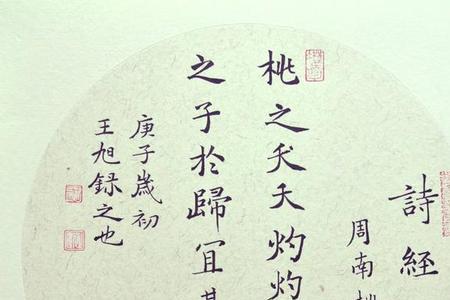 詩經
周南桃
桃之夭夭灼灼
之子於歸宜其
庚子歲初
王旭録之也